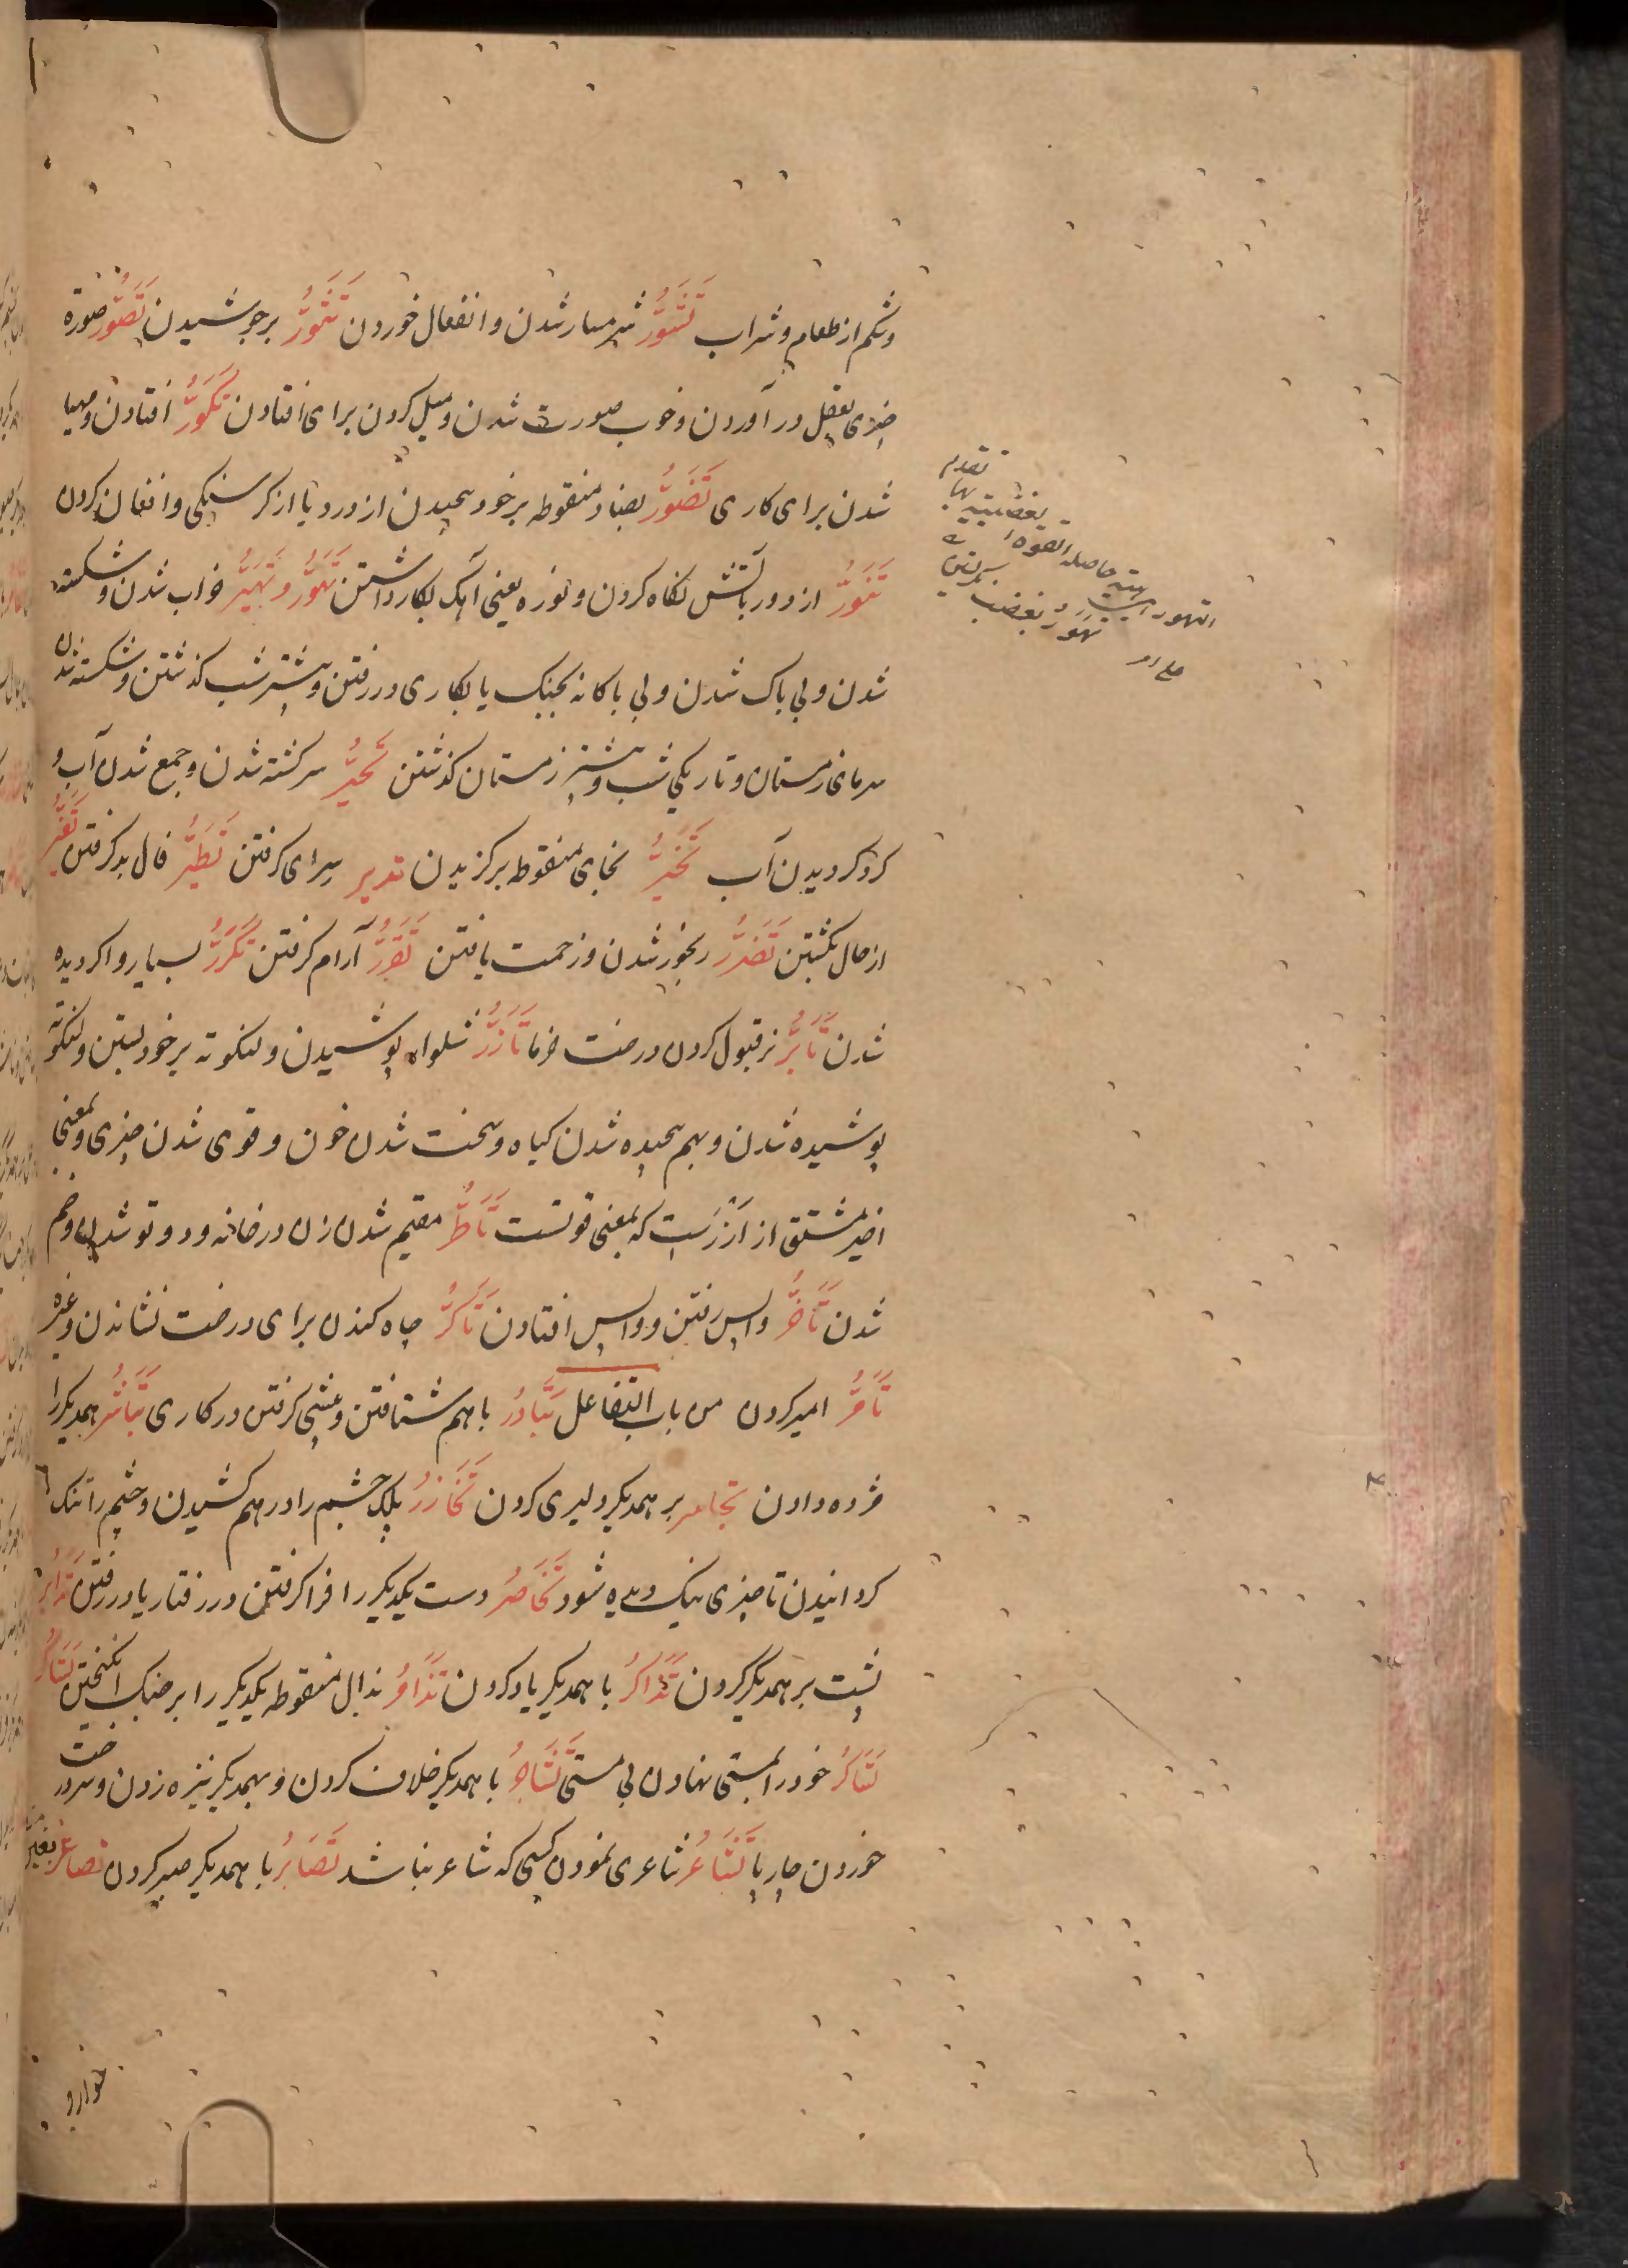 وشکم از طعام و شراب تَشَوُّر شرمسار شدن و انفعال خوردن تَثَوُّر برجوشیدن تَصَوُّر صورة
چیزی بعقل در آوردن و خوب صورت شدن و میل کردن برای افتادن تَکَوُّر افتادن و مهیا
شدن برای کاری تَضَوُّر بضاد منقوطه برخود پیچیدن از درد یا از کرسنکی و افغان کردن
تَنَوُّر از دور باتش نکاه کردن و نوره یعنی آهک بکار داشتن تَهَوُّر و تَهَیُّر خراب شدن و شکسته
شدن و بی باک شدن و بی باکانه بجنک یا بکاری در رفتن و بیشتر شب کذشتن و شکسته شدن
سرمای زمستان و تاریکی شب و بیشتر زمستان کذشتن تَحَیُّر سرکشته شدن و جمع شدن آب و
کرد کردیدن آب تَخَیُّر بخای منقوطه برکزیدن تدیر سرای کرفتن تَطَیُّر فال بد کرفتن تَغَیُّر
از حال بکشتن تَضَرُّر رنجور شدن و زحمت یافتن تَقَرُّر آرام کرفتن تَکَرُّر بسیار وا کردیده
شدن تَأَبُّر نر قبول کردن درخت خرما تَأَزُّر شلوار پوشیدن و لنکوته بر خود بستن و لنکوته
پوشیده شدن و بهم پیچیده شدن کیاه و سخت شدن خون و قوی شدن چیزی و بمعنی
اخیر مشتق از اَزْرَست که بمعنی قوتست تَأَطُّر مقیم شدن زن در خانه و دو تو شدن و خم
شدن تَأَخُّر واپس رفتن و واپس افتادن تَأَکُّر چاه کندن برای درخت نشاندن و غیره
تَأَمُّر امیر کردن من باب التفاعل تَبَادُر باهم شتافتن و پیشی کرفتن در کاری تَبَاشُر همدیکر را
مژده دادن تجاسر بر همدیکر دلیری کردن تَخَازُر پلک چشم را درهم کشیدن و چشم را تنک
کردانیدن تا چیزی نیک دیده شود تَخَاصُر دست یکدیکر را فرا کرفتن در رفتار یا در رفتن تَدَابُر
پشت بر همدیکر کردن تَذَاکُر با همدیکر یاد کردن تَذَامُر بذال منقوطه یکدیکر را بر جنک انکیختن تَسَاکُر
تَسَاکُر خود را بمستی نهادن بی مستی تَشَاجُر با همدیکر خلاف کردن و بهمدیکر نیزه زدن و سر درخت
خوردن چارپا تَشَاعُر شاعری نمودن کسی که شاعر نباشد تَصَابُر با همدیکر صبر کردن تصاغر بغین